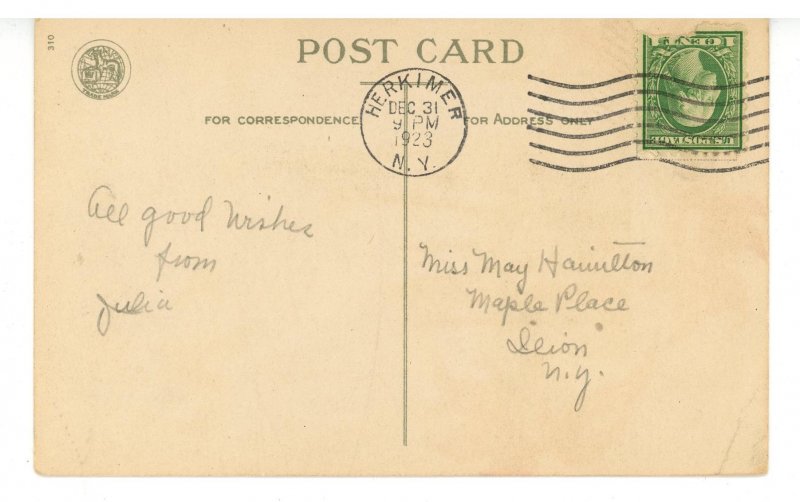 310
POST CARD
FOR CORRESPONDENCE
FOR ADDRESS ONLY
HERKIMER
DEC 31
9 PM
1923
N.Y.
All good wishes
from
Julia
Miss May Hamilton
Maple Place
Ilion
N.Y.